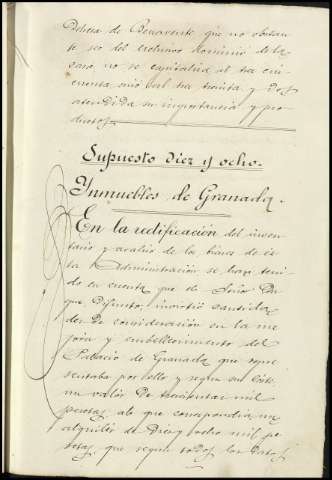 Dehesa de Benavente que no obstan
te ser del exclusivo dominio de la
casa no se capitaliza al tres cin
cuenta sino al tres treinta y dos
atendida su importancia y pro
ductos.
Supuesto diez y ocho.
Inmuebles de Granada.
En la redificación del inven
tario y avalúo de los bienes de es
ta Administración se han teni
do en cuenta que el Señor Du
que Difunto, invirtió cantida
des de consideración en la me
jora y embellecimiento del
Palacio de Granada que repre
sentaba por ello y según
un valor de trescientas mil
pesetas al que correspondía un
alquiler de Diez y ocho mil pe
setas que según todos los datos